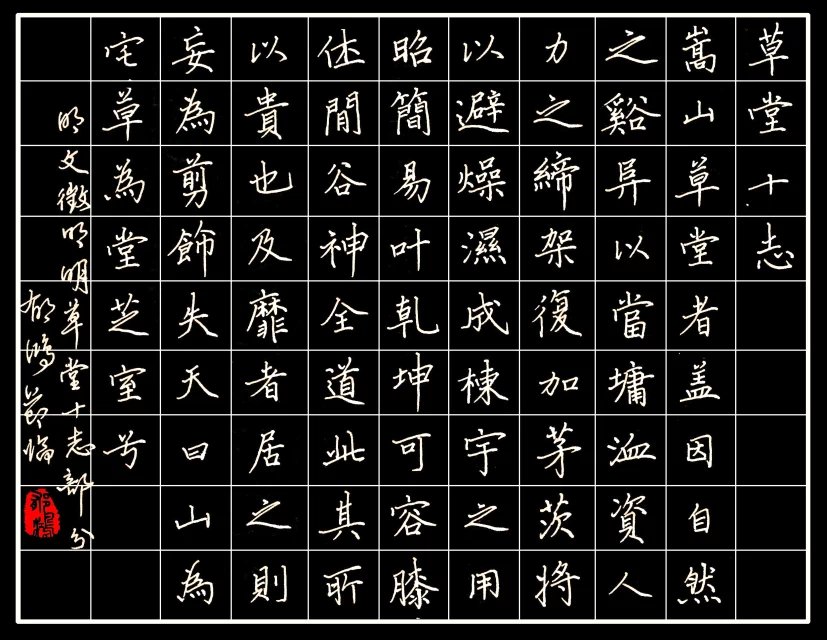 草堂十志
嵩山草堂者盖因自然
之谿阜以當墉洫資人
力之締架復加茅茨將
以避燥濕成棟宇之用
昭簡易叶乾坤可容膝
休閒谷神全道此其所
以貴也及靡者居之則
妄為剪飾失天曰山為
宅草為堂芝室兮
明文徵明明草堂十志部分
郁鴻節临